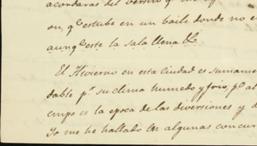 acordaras del
en, qe estube en un baile donde no e
aunqe este la sala llena &c
El Hivierno en esta ciudad es sumame
dable pr su clima humedo y frio, pr al
empo es la epoca de las diversiones y d
Yo me he hallado en algunas concur